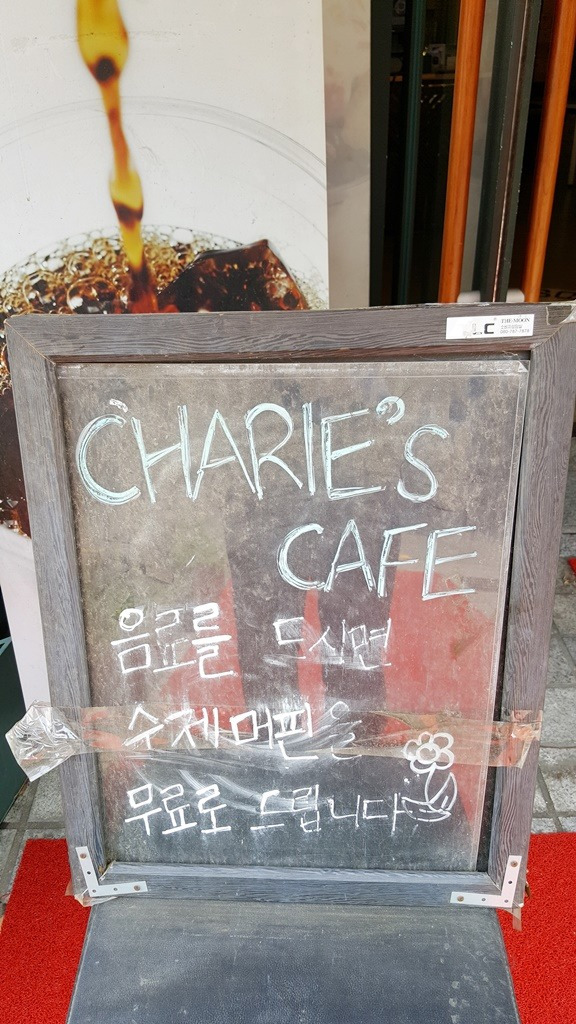 THE MOON
CHARIE'S
CAFE
음료를 드시면
수제머핀을
무료로 드립니다